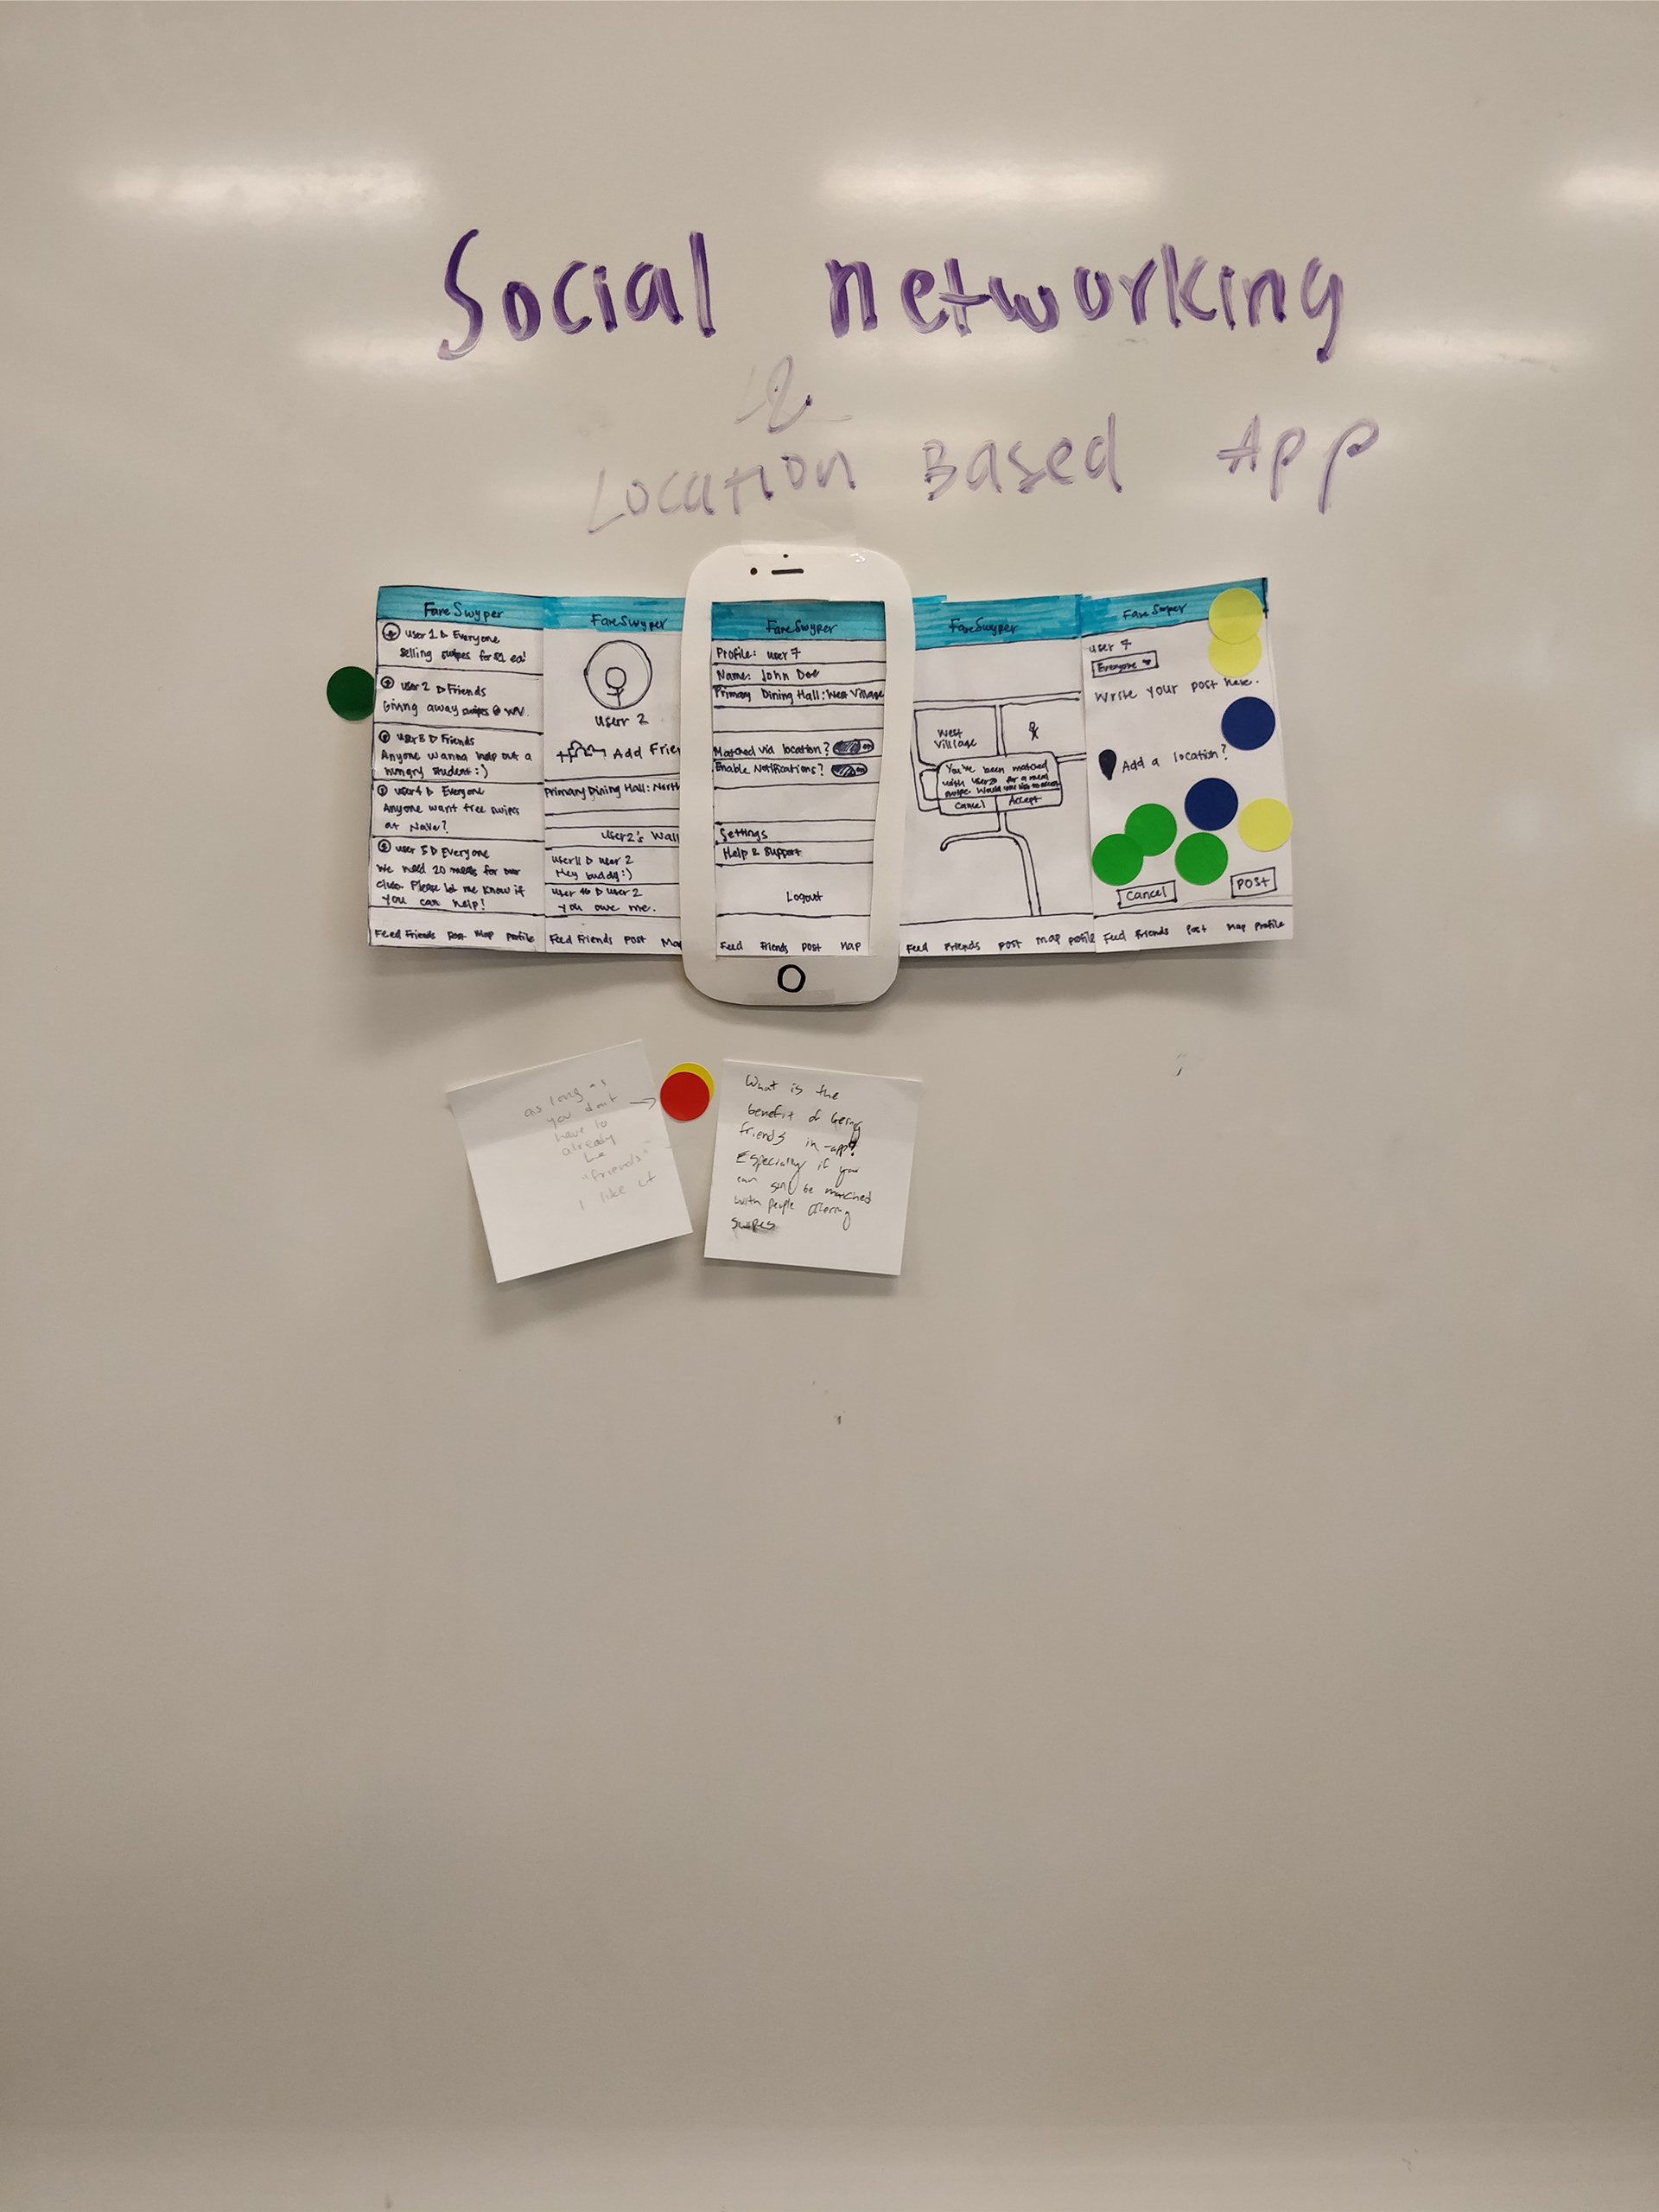 Social networking
&
Location Based App
FareSwyper
user 1 ▷ Everyone
Selling swipes for $1 ea!
user 2 ▷ Friends
Giving away swipes @ WV.
user 3 ▷ Friends
Anyone wanna help out a
hungry student :)
user 4 ▷ Everyone
Anyone want free swipes
at Nave?
user 5 ▷ Everyone
We need 20 meals for our
club. Please let me know if
you can help!
Feed Friends Post Map Profile
FareSwyper
User 2
+ Add Frien
Primary Dining Hall: North
User2's Wall
User11 ▷ user 2
Hey buddy :)
User 46 ▷ user 2
you owe me.
Feed Friends Post Map
FareSwyper
Profile: user 7
Name: John Doe
Primary Dining Hall: West Village
Matched via location? on
Enable Notifications? on
Settings
Help & Support
Logout
Feed Friends Post Map
FareSwyper
West
Village
You've been matched
with user2 for a meal
swipe. Would you like to accept
Cancel Accept
Feed Friends Post Map Profile
FareSwyper
user 7
Everyone
Write your post here.
Add a location?
Cancel POST
Feed Friends Post Map Profile
as long as
you don't
have to
already
be
"friends"
I like it
What is the
benefit of being
friends in-app?
Especially if you
can still be matched
with people offering
swipes